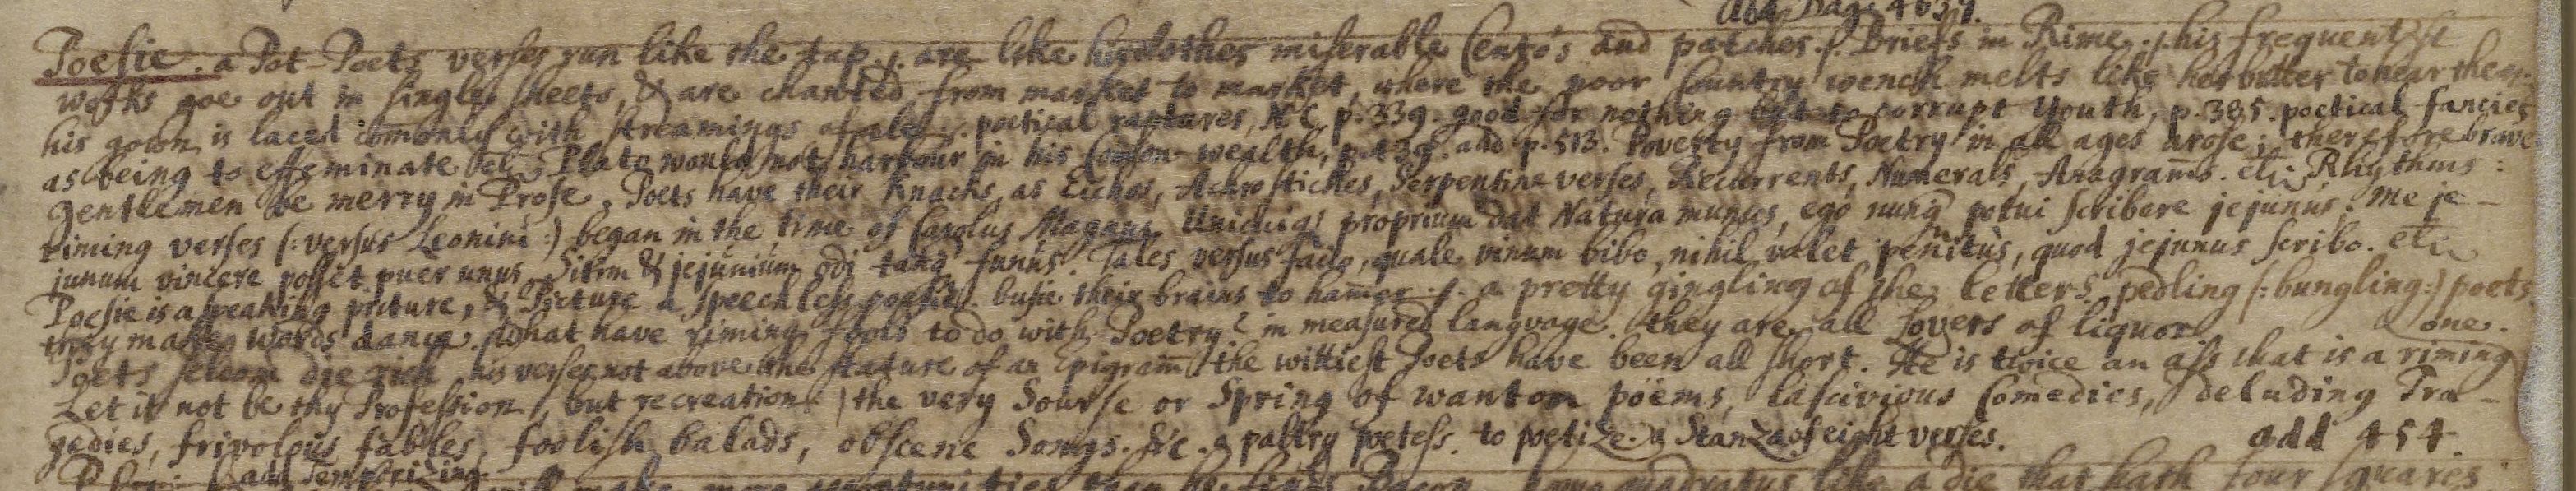 add pag. 4639.
Poesie. a Pot-Poets verses run like the tap. are like his clothes miserable Cento's and patches. Briefs in Rime. his frequent'st
works goe out in single sheets, & are chanted from market to market, where the poor Country wench melts like her butter to hear them.
his gown is laced comonly with streamings of ale. poetical raptures, NC p. 339. good for nothing but to corrupt Youth, p. 385. poetical fancies
as being to effeminate Plato would not harbour in his Comon-wealth, p. 439. add p. 513. Poverty from Poetry in all ages arose; therefore brave
gentlemen be merry in Prose. Poets have their Knacks, as Ecchos, Achrostiches, Serpentine verses, Recurrents, Numerals, Anagram̄s. etc. Rhythms:
riming verses (: versus Leonini :) began in the time of Carolus Magnus. Unicuiq; proprium dat Natura munus, ego nunq̃ potui scribere jejunus; Me je-
junum vincere posset puer unus. Sitim & jejunium odi tanq̃ funus. Tales versus facio, quale vinum bibo, nihil valet penitùs, quod jejunus scribo. etc
Poesie is a speaking picture, & Picture a speechless poesie. busie their brains to ham̄er. a pretty gingling of the letters. pedling (: bungling :) poets
they make words dance. What have riming fools to do with Poetry? in measured langvage. they are all Lovers of liquor.
Poets seldom die rich. his verses not above the stature of an Epigram̄. the wittiest Poets have been all short. He is twice an ass that is a riming one.
Let it not be thy Profession, but recreation. the very Sourse or Spring of wanton pöems, lascivious Comedies, deluding Tra-
gedies, frivolous fables, foolish balads, obscene Songs. &c. a paltry poetess. to poetize. a Stanza of eight verses. add 454
add Temporizing
quadratus like a die that hath four squares